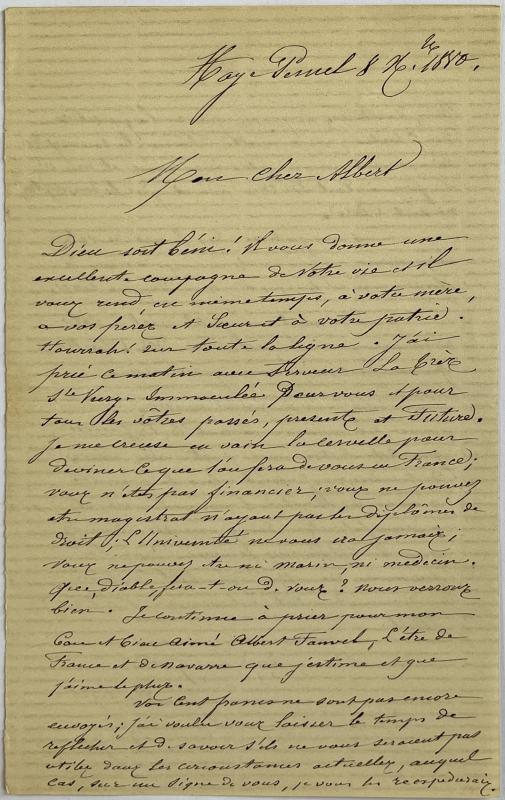 Haye Pesnel 8 Xbre 1880.
Mon cher Albert
Dieu soit béni! Il vous donne une
excellente compagne de Votre vie et Il
vous rend, en même temps, à votre mère,
à vos frères et Sœur et à votre patrie.
Hourrah! sur toute la ligne. J'ai
prié ce matin avec ferveur La Très
Ste Vierge Immaculée Pour vous et pour
tous les vôtres passés, présents et Futurs.
Je me creuse en vain la cervelle pour
deviner ce que l'on fera de vous en France;
vous n'êtes pas financier; vous ne pouvez
être magistrat n'ayant pas les diplômes de
droit; L'Université ne vous ira jamais;
Vous ne pouvez être ni marin, ni médecin.
Que, diable, fera-t-on d. vous? Nous verrons
bien. Je continue à prier pour mon
Cher et Bien Aimé Albert Fauvel, L'être de
France et de Navarre que j'estime et que
j'aime le plus.
Vos Cent francs ne sont pas encore
envoyés; j'ai voulu vous laisser le temps de
réfléchir et d. savoir s'ils ne vous seraient pas
utiles dans les circonstances actuelles, auquel
cas, sur un signe de vous, je vous les réexpédierais.